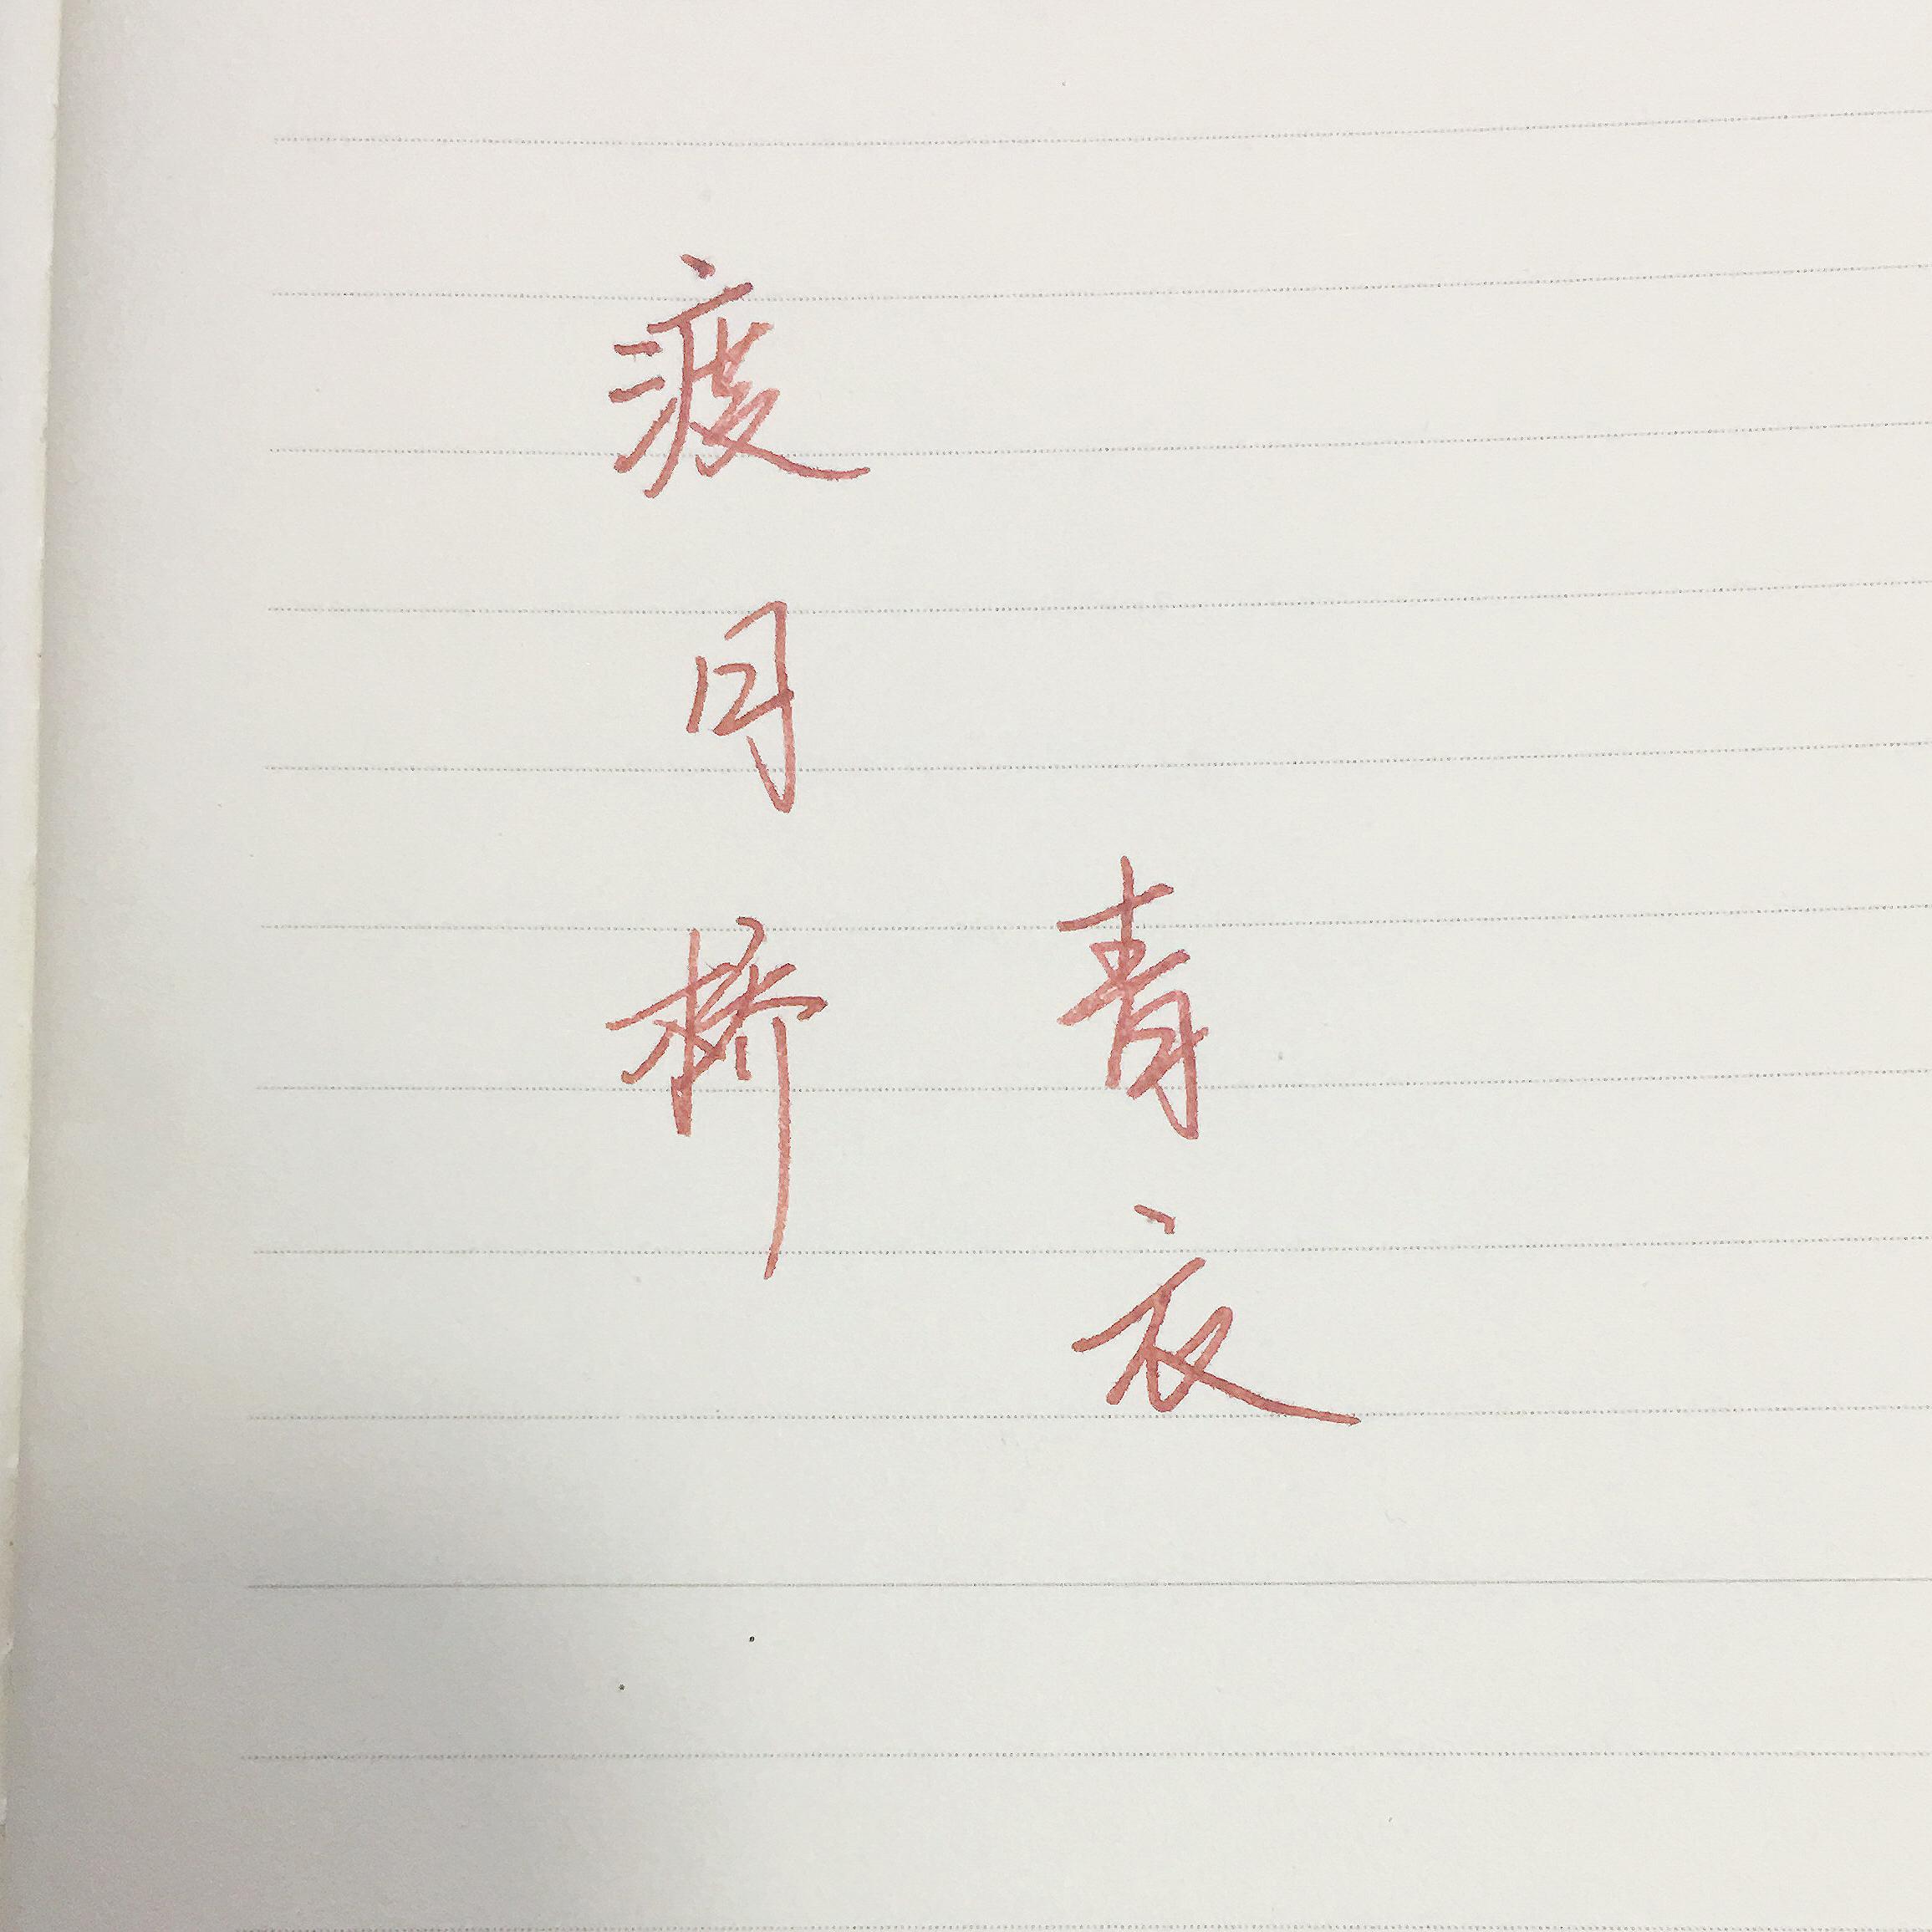 渡月桥
青衣